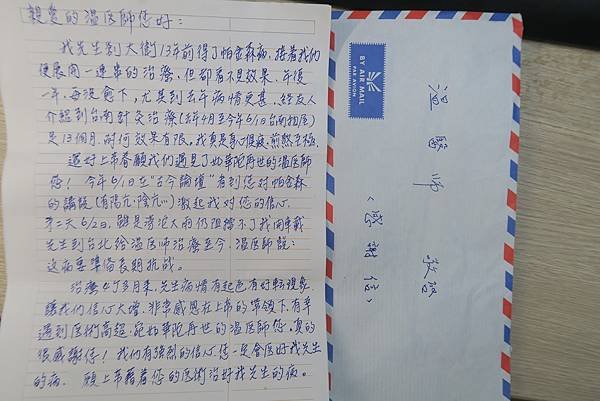 親愛的溫医師您好：
我先生劉大衛13年前得了帕金森病，接着我們
便展開一連串的治療，但卻看不見效果，年復
一年，每況愈下，尤其到去年病情更甚，経友人
介紹到台南針灸治療（去年4月至今年6/1日台南租屋）
是13個月，耐何效果有限，我真是身心俱疲，煎熬至極。
還好上帝眷顧我們遇見了如華陀再世的溫医師
您！今年6/1日在"古今論壇"看到您对帕金森
的講說（有陽亢，陰亢…）激起我对您的信心，
第二天6/2日，雖是滂沱大雨仍阻擋不了我開車載
先生到台北給溫医師治療至今，溫医師說：
这病要準備長期抗战。
治療4个多月來，先生病情有起色有好転現象，
讓我們信心大增，非常感恩在上帝的帶領下，有幸
遇到医術高超，宛如華陀再世的溫医師您，真的
很感謝您！我們有強烈的信心，您一定會医好我先生
的病。願上帝藉着您的医術治好我先生的病。
BY AIR MAIL
PAR AVION
溫醫師 敬啓
（感謝信）